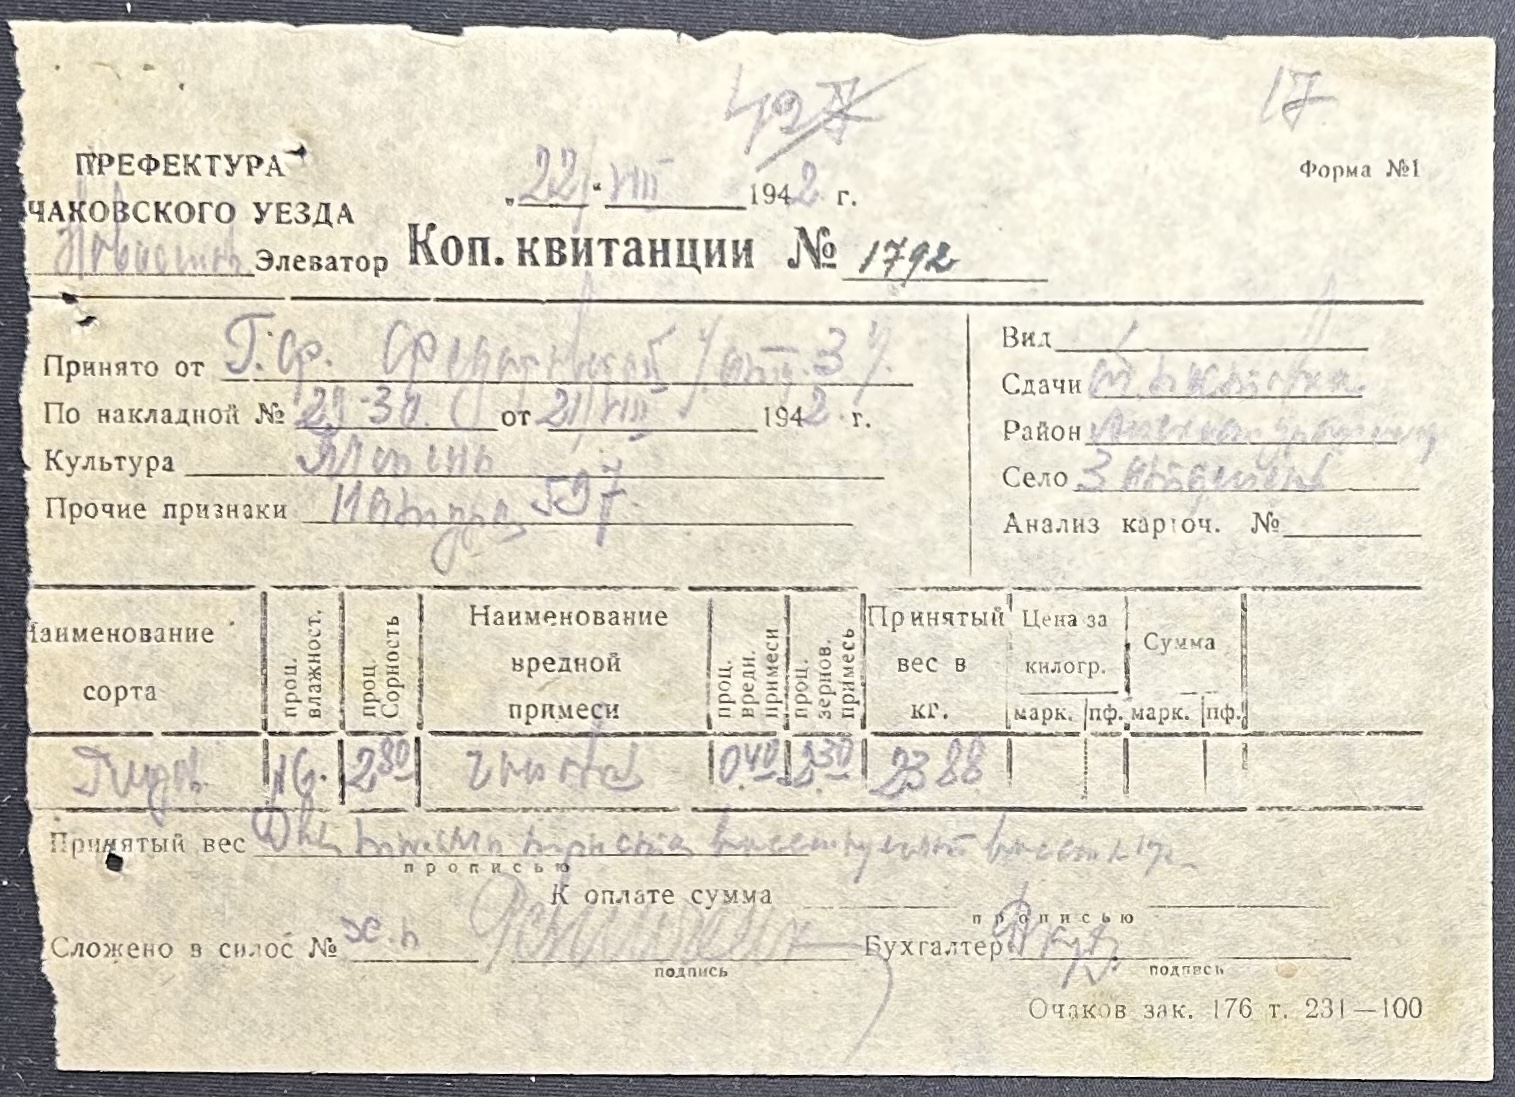 427
17
ПРЕФЕКТУРА
ЧАКОВСКОГО УЕЗДА
Элеватор
„22“ VIII 1942 г.
Форма №1
Коп. квитанции № 1792
Принято от Г. Ср.
По накладной № 29-30. от 21/VIII 1942 г.
Культура
Прочие признаки Натура 597
Вид
Сдачи
Район
Село 3
Анализ карточ. №
Наименование сорта
проц. влажност.
проц Сорность
Наименование вредной примеси
проц. вредн. примеси
проц. зернов. примесь
Принятый вес в кг.
Цена за килогр.
Сумма
марк. пф. марк. пф.
16. 2 80 0 40 2. 30 2388
Принятый вес Две тысячи триста восемьдесят восемь кгр
прописью
К оплате сумма
прописью
Сложено в силос № Бухгалтер
подпись подпись
Очаков зак. 176 т. 231—100